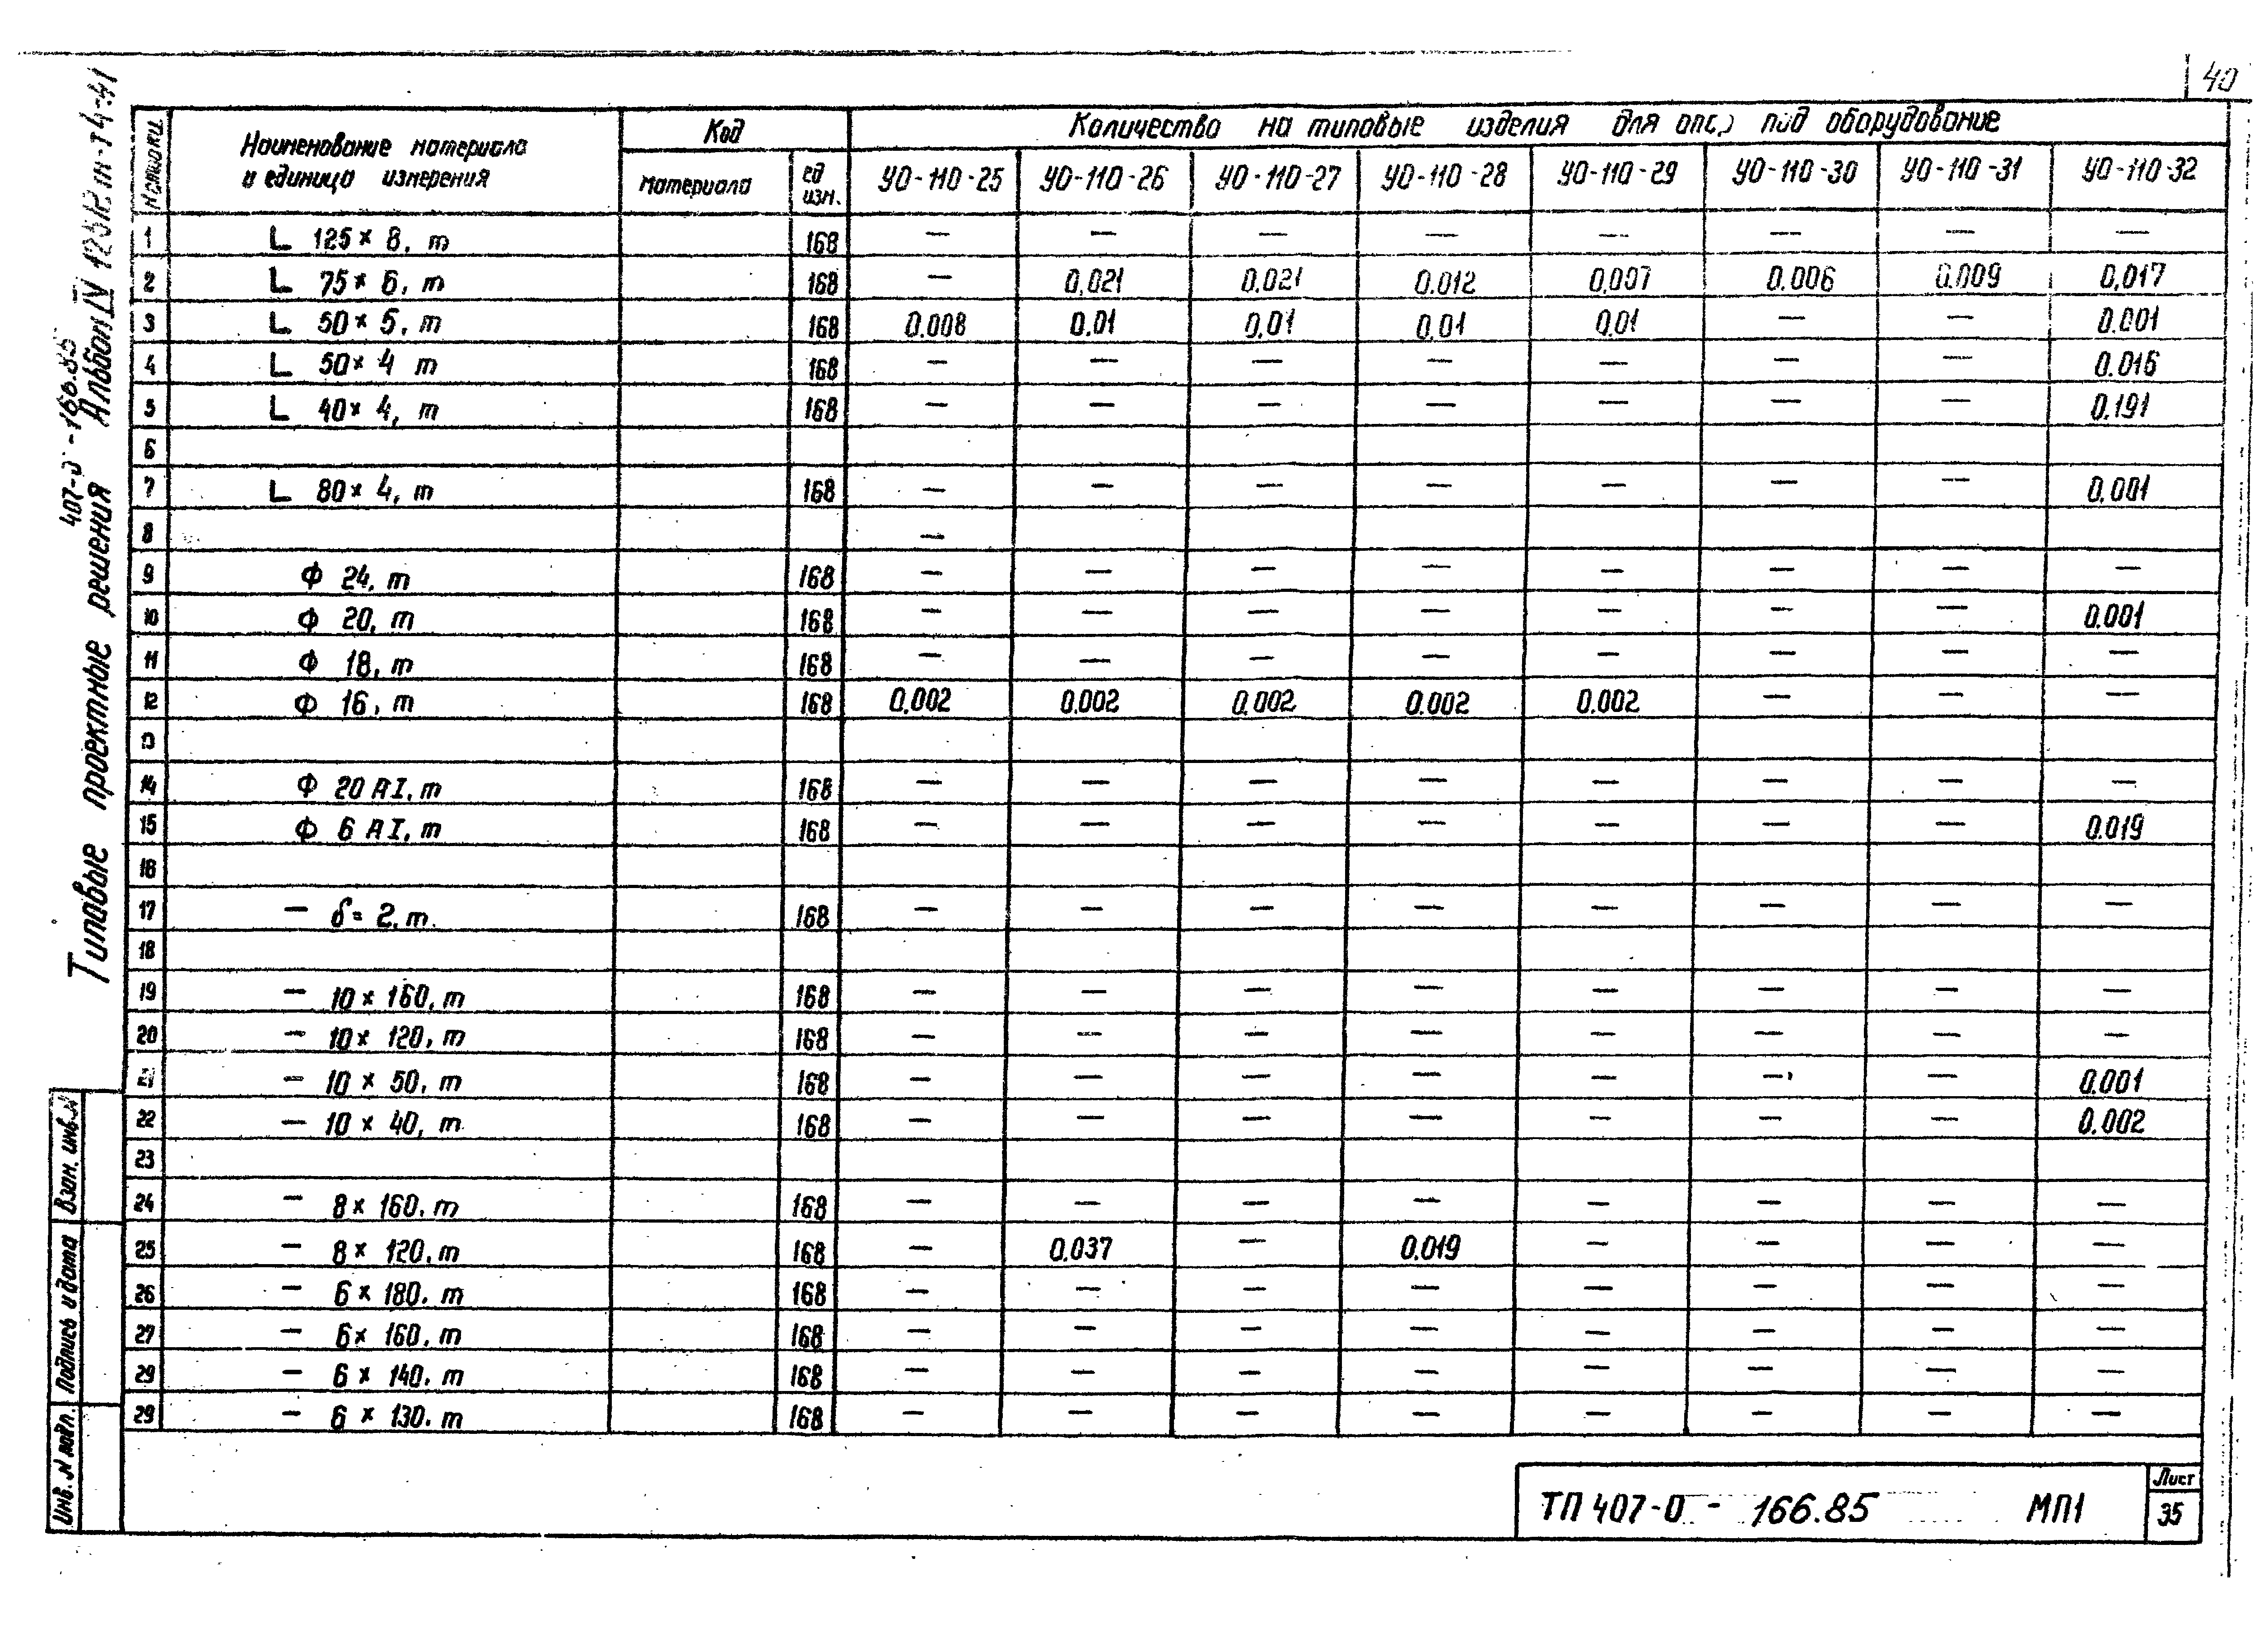 40
Количество на типовые изделия для опор под оборудование
Наименование материала и единица измерения
Код
материала
ед изм.
УО-110-25 УО-110-26 УО-110-27 УО-110-28 УО-110-29 УО-110-30 УО-110-31 УО-110-32
1 L 125×8, т 168 — — — — — — — —
2 L 75×6, т 168 — 0,021 0.021 0.012 0,007 0.006 0.009 0,017
3 L 50×5, т 168 0.008 0.01 0,01 0,01 0,01 — — 0.001
4 L 50×4 т 168 — — — — — — — 0.016
5 L 40×4, т 168 — — — — — — — 0.191
6
7 L 80×4, т 168 — — — — — — — 0.001
8 —
9 Ф 24, т 168 — — — — — — — —
10 Ф 20, т 168 — — — — — — — 0.001
11 Ф 18, т 168 — — — — — — — —
12 Ф 16, т 168 0.002 0.002 0.002 0.002 0.002 — — —
13
14 Ф 20 АI, т 168 — — — — — — — —
15 Ф 6 АI, т 168 — — — — — — — 0.019
16
17 — δ= 2, т. 168 — — — — — — — —
18
19 — 10×160, т 168 — — — — — — — —
20 — 10×120, т 168 — — — — — — — —
21 — 10×50, т 168 — — — — — — — 0.001
22 — 10×40, т 168 — — — — — — — 0.002
23
24 — 8×160, т 168 — — — — — — — —
25 — 8×120, т 168 — 0.037 — 0.019 — — — —
26 — 6×180, т 168 — — — — — — — —
27 — 6×160, т 168 — — — — — — — —
29 — 6×140, т 168 — — — — — — — —
29 — 6×130, т 168 — — — — — — — —
Типовые проектные решения Альбом IV
Взам. инв. N
Подпись и дата
Инв. N подл.
ТП 407-0 - 166.85 МП1
Лист
35